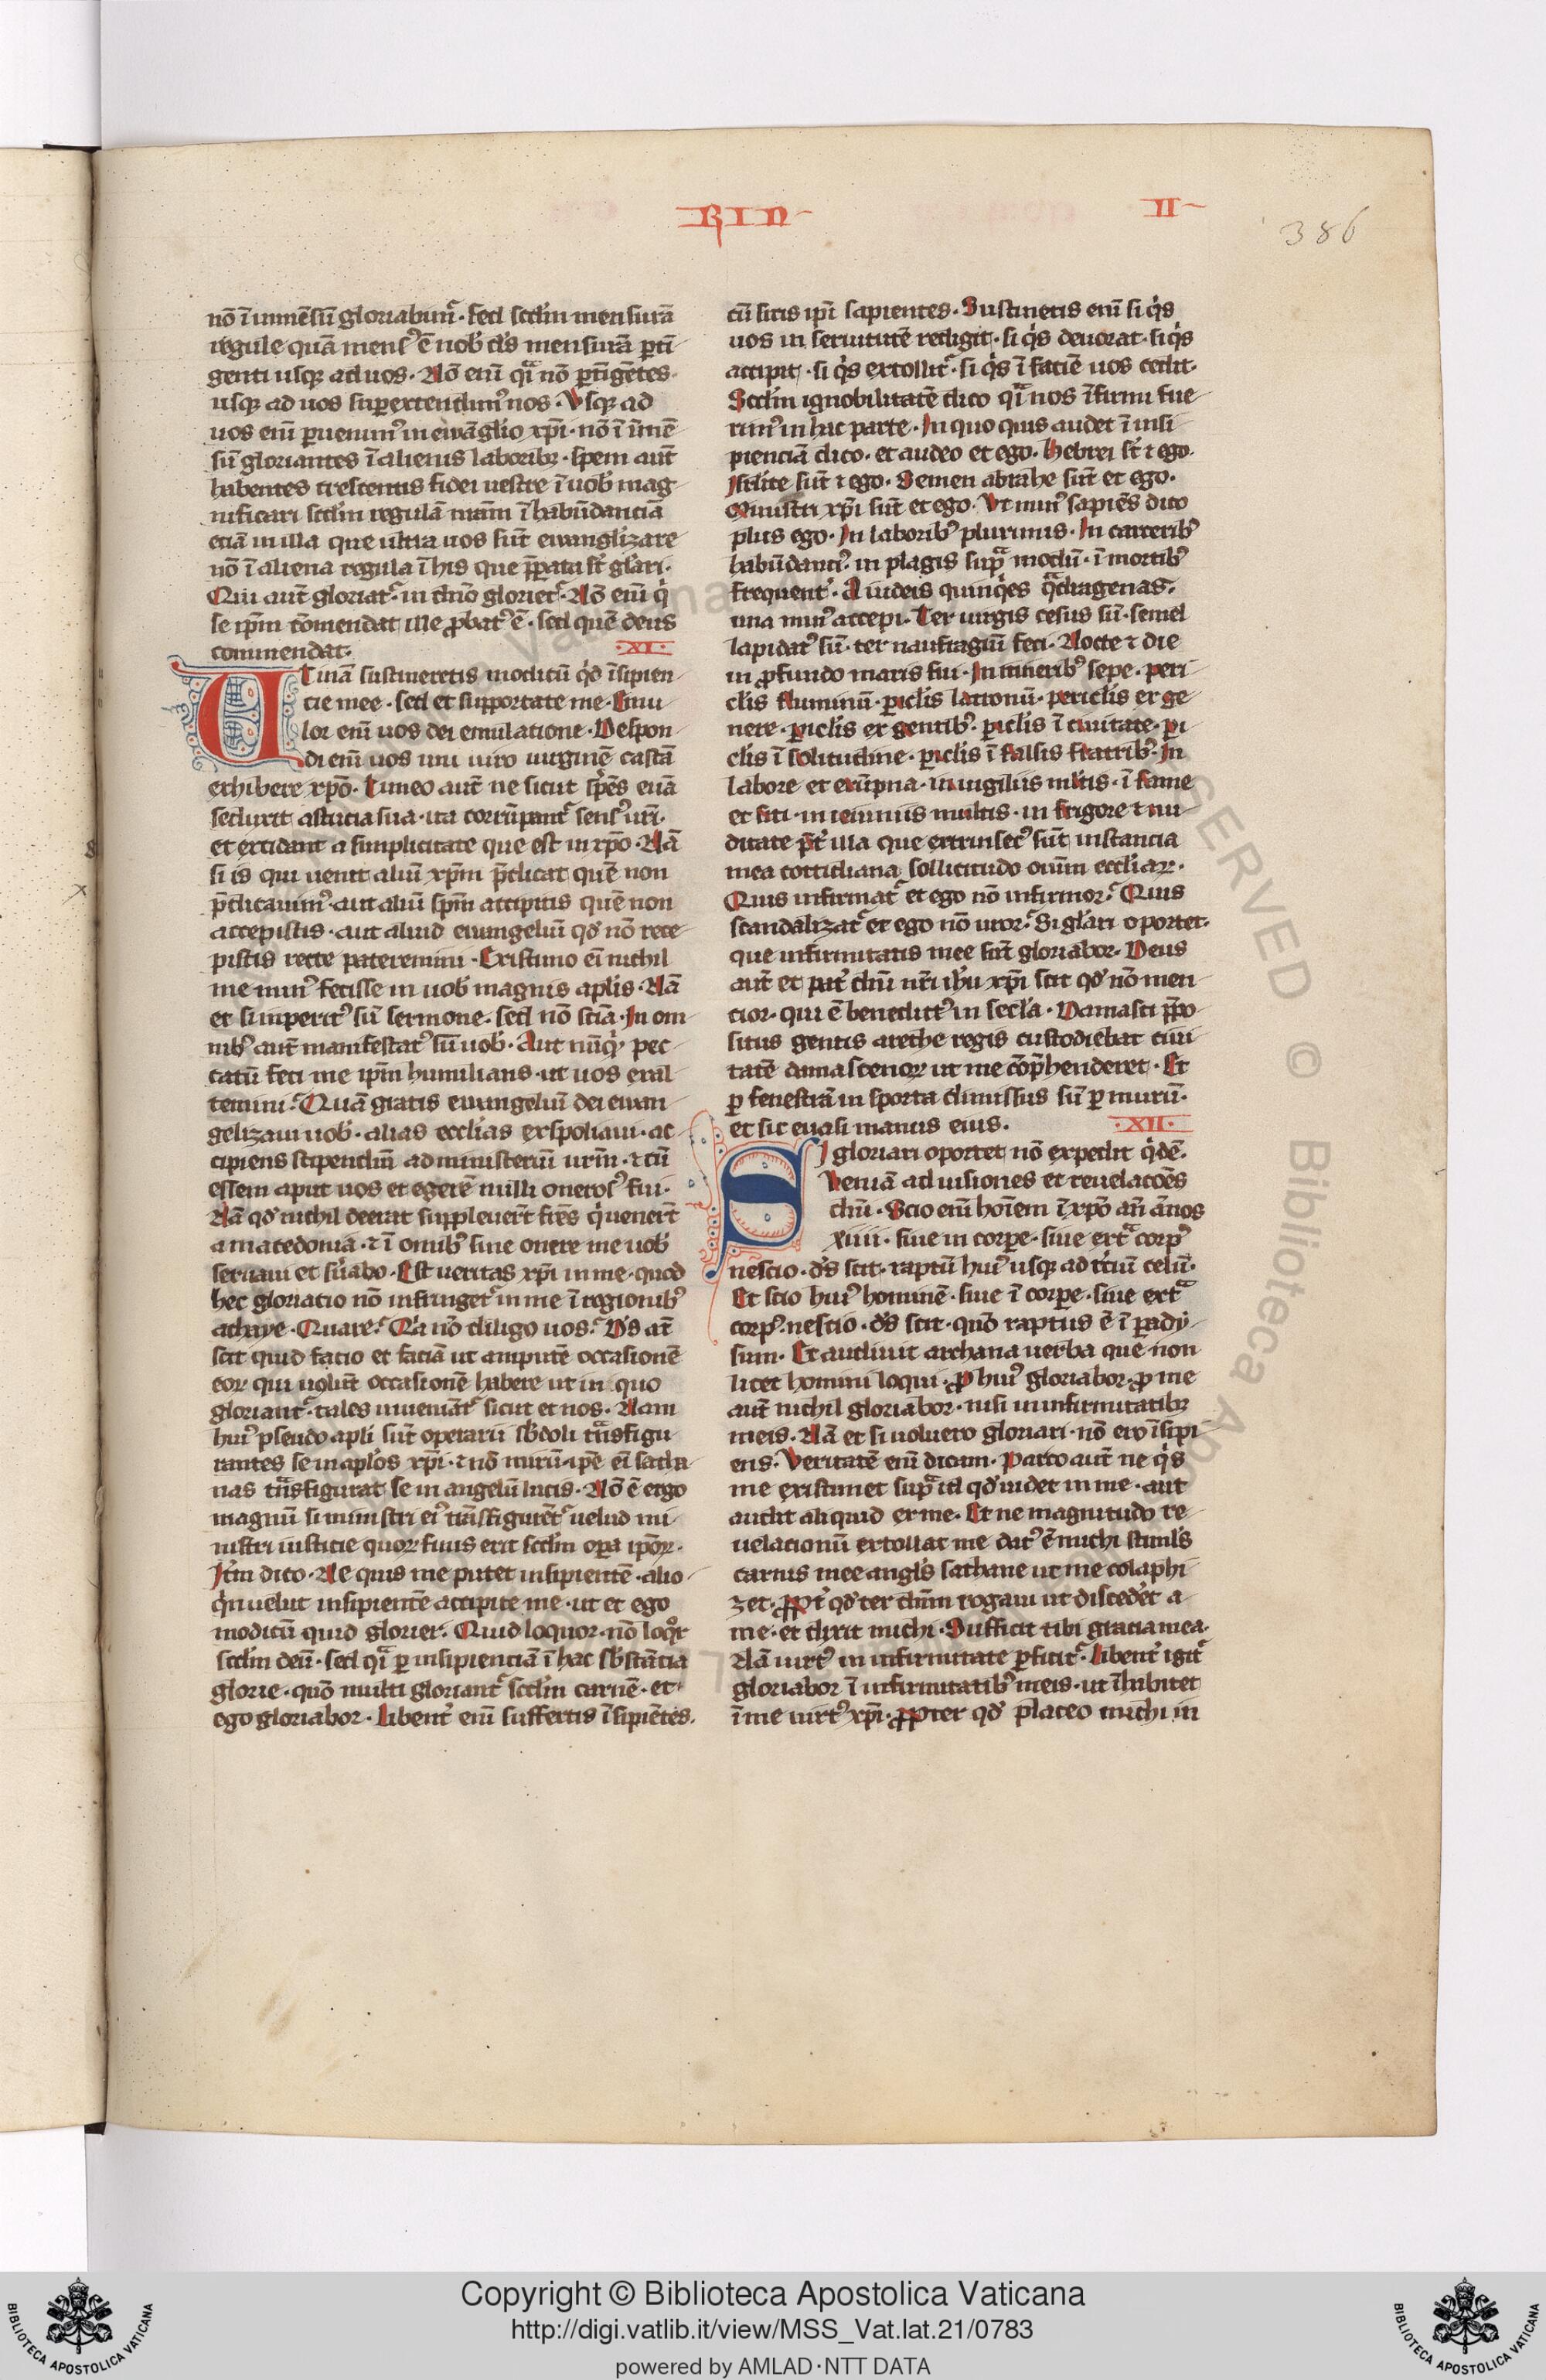 RIN
II
386
nō ī īmēsū gloriabim᷑. sed scdm mensurā
regule quā mens᷒ ē nob̵ ds mensurā ꝑti-
gendi usqꝫ ad uos. Nō eni qͣi nō ꝑtigētes
usqꝫ ad uos suꝑextendim᷒ nos. Vsqꝫ ad
uos eni ꝑuenim᷒ in ewāglio xp̄i. nō ī īmē-
sū gloriantes ī alienis laboribꝫ. spem aut̄
habentes crescentis fidei uestre ī uob̵ mag-
nificari scdm regulā nr̄am ī habūdanciā
eciā in illa que ultra uos sūt ewanglizare
nō ī aliena regula ī his que p̄parata st̄ gl̄ari.
Qui aut̄ gloriat᷑ in dn̄o gloriet᷑. Nō eni q̇
se ip̄m cōmendat ille ꝓbat᷒ ē. sed quē deus
commendat.
.XI.
UTinā sustineretis modicū qd̵ īsipien-
cie mee. sed et supportate me. Emu-
lor eni uos dei emulatione. Despon-
di eni uos uni uiro uirginē castā
exhibere xp̄o. Timeo aut̄ ne sicut sp̄es euā
seduxit astucia sua. ita corrūpant᷑ sens᷒ ur̄i.
et excidant a simplicitate que est in xp̄o. Nā
si is qui uenit aliū xp̄m p̄dicat quē non
p̄dicauim᷒. aut aliū sp̄m accipitis quē non
accepistis. aut aliud ewangeliū qd̵ nō rece-
pistis recte pateremini. Existimo eī nichil
me min᷒ fecisse in uob̵ magnis apl̄is. Nā
et si inperit᷒ sū sermone. sed nō sciā. In om-
nib᷒ aut̄ manifestat᷒ sū uob̵. Aut nūq̇ pec-
catū feci me ip̄m humilians. ut uos exal-
temini. Quā gratis ewangeliū dei ewan-
gelizaui uob̵. alias ecclias exspoliaui. ac-
cipiens stipendiū ad ministeriū ur̄m. ⁊ cū
essem aput uos et egerē nulli oneros᷒ fui.
Nā qd̵ michi deerat suppleuer̄t fr̄es q̇ uener̄t
a macedonia. ⁊ ī om̄ib᷒ sine onere me uob̵
seruaui et s̄uabo. Est ueritas xp̄i in me. quod
hec gloriatio nō infringet᷑ in me ī regionib᷒
achaye. Quare. Qa nō diligo uos. D̄s at̄
scit quid facio et faciā ut amputē occasionē
eoꝝ qui uolūt occasionē habere ut in quo
gloriant᷑. tales inueniāt᷑ sicut et nos. Nam
hui᷒ pseudo apl̄i sūt operarii sb̵doli trāsfigu-
rantes se in apl̄os xp̄i. ⁊ nō mirū. ip̄e eī satha-
nas trāsfigurat se in angelū lucis. Nō ē ergo
magnū si ministri ei᷒ trāsfigurēt᷑ uelud mi-
nistri iusticie quoꝝ finis erit scdm oꝑa ip̄oꝝ.
Itm dico. Ne quis me putet insipientē. alio-
q̇n uelut insipientē accipite me. ut et ego
modicū quid glorier. Quid loquor. nō loq̊r
scdm deū. sed qͣi ꝑ insipienciā ī hac sb̵stācia
glorie. quō multi gloriant᷑ scdm carnē. et
ego gloriabor. Libent᷑ eni suffertis īsipiētes.
cū sitis ip̄i sapientes. Sustinetis eni si q̇s
uos in seruitutē redigit. si q̇s deuorat. si q̇s
accipit. si q̇s extollit᷑. si q̇s ī faciē uos cedit.
Scdm ignobilitatē dico qͣi nos īfirmi fue-
rim᷒ in hac parte. In quo quis audet ī insi-
pienciā dico. et audeo et ego. Hebrei st̄ ⁊ ego.
Isr̄lite sūt ⁊ ego. Semen abrahe sūt et ego.
Ministri xp̄i sūt et ego. Vt min᷒ sapiēs dico
plus ego. In laborib᷒ plurimis. In carcerib᷒
habūdanci᷒. in plagis supͣ modū. ī mortib᷒
frequent᷑. A iudeis quinq̇es qͣdragenas.
una min᷒ accepi. Ter uirgis cesus sū. semel
lapidat᷒ sū. ter naufragiū feci. Nocte ⁊ die
in ꝓfundo maris fui. In itinerib᷒ sepe. peri-
clis fluminū. ꝑiclis latronū. periclis ex ge-
nere. ꝑiclis ex gentib᷒. ꝑiclis ī ciuitate. ꝑi-
clis ī solitudine. ꝑiclis ī falsis fratrib᷒. In
labore et erūpna. in uigiliis ml̄tis. ī fame
et siti. in ieiuniis multis. in frigore ⁊ nu-
ditate p̄t᷑ illa que extrinsec᷒ sūt instancia
mea cottidiana sollicitudo om̄im eccl̄iaꝝ.
Quis infirmat᷑ et ego nō infirmor. Quis
scandalizat᷑ et ego nō uror. Si gl̄ari oportet.
que infirmitatis mee sūt gloriabor. Deus
aut̄ et pat᷑ dn̄i nr̄i ih̄u xp̄i scit qd̵ nō men-
cior. qui ē benedict᷒ in secl̄a. Damasci p̄po-
situs gentis arethe regis custodiebat ciui-
tatē damascenoꝝ ut me cōp̄henderet. Et
ꝑ fenestrā in sporta dimissus sū ꝑ murū.
et sic euasi manus eius.
.XII.
SI gloriari oportet nō expedit q̇dē.
Veniā ad uisiones et reuelacōes
dn̄i. Scio eni hoīem ī xp̄o an̄ ānos
xiiii. siue in corpe. siue extͣ corp᷒
nescio. d̄s scit. raptū hui᷒ usqꝫ ad tr̄ciū celū.
Et scio hui᷒ hominē. siue ī corꝑe. siue extͣ
corp᷒. nescio. d̄s scit. quō raptus ē ī ꝑady-
sum. Et audiuit archana uerba que non
licet homini loqui. ꝓ hui᷒ gloriabor. ꝓ me
aut̄ nichil gloriabor. nisi in infirmitatibꝫ
meis. Nā et si uoluero gloriari. nō ero īsipi-
ens. Veritatē eni dicam. Parco aut̄ ne q̇s
me existimet supͣ id qd̵ uidet in me. aut
audit aliquid ex me. Et ne magnitudo re-
uelacionū extollat me dat᷒ ē michi stimls
carnis mee angls sathane ut me colaphi-
zet. ꝓpt᷑ qd̵ ter dn̄m rogaui ut discedēt a
me. et dixit michi. Sufficit tibi gracia mea.
Nā uirt᷒ in infirmitate ꝑficit᷑. Libent᷑ igit᷑
gloriabor ī infirmitatib᷒ meis. ut īhabitet
ī me uirt᷒ xp̄i. ꝓpter qd̵ placeo michi in
Copyright © Biblioteca Apostolica Vaticana
http://digi.vatlib.it/view/MSS_Vat.lat.21/0783
powered by AMLAD·NTT DATA
BIBLIOTECA APOSTOLICA VATICANA
BIBLIOTECA APOSTOLICA VATICANA